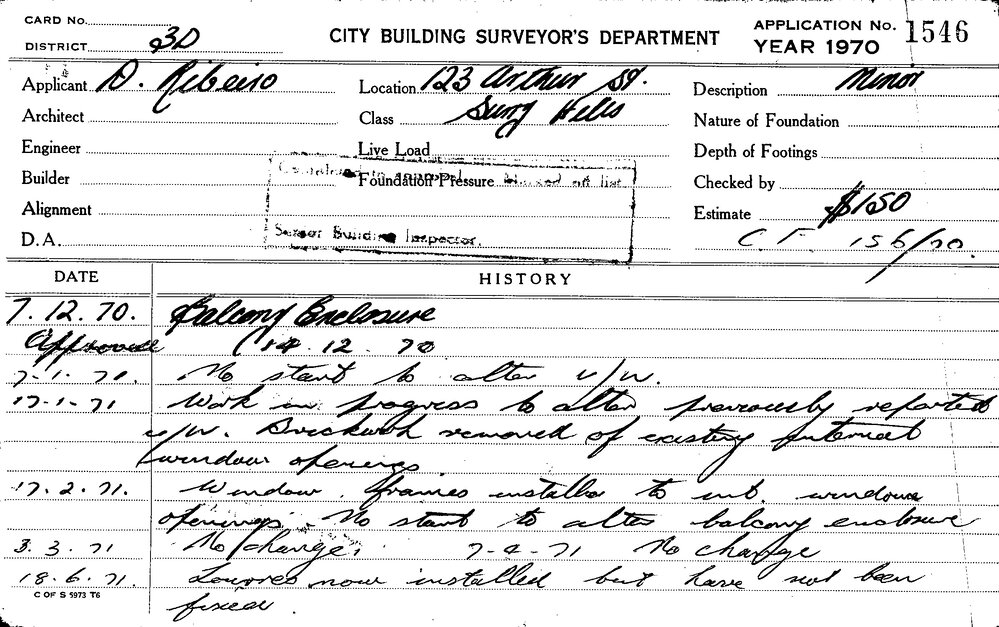 CARD No.
DISTRICT 3D
CITY BUILDING SURVEYOR'S DEPARTMENT
APPLICATION No. 1546
YEAR 1970
Applicant D. Ribeiro
Location 123 Arthur St.
Description Minor
Architect
Class Surry Hills
Nature of Foundation
Engineer
Live Load
Depth of Footings
Builder
Foundation Pressure
Checked by
Alignment
Estimate $150
D.A.
Building Inspector.
C.F. 156/70.
DATE HISTORY
7.12.70. Balcony Enclosure
Approved 14.12.70
7.1.71. No start to alter u/w.
17-1-71 Work in progress to alter previously reported
u/w. Brickwork removed of existing internal
window openings.
17.2.71. Window frames installed to int. windows
openings. No start to alter balcony enclosure
3.3.71 No change. 7-4-71 No change
18.6.71. Louvres now installed but have not been
fixed.
C OF S 5973 T6